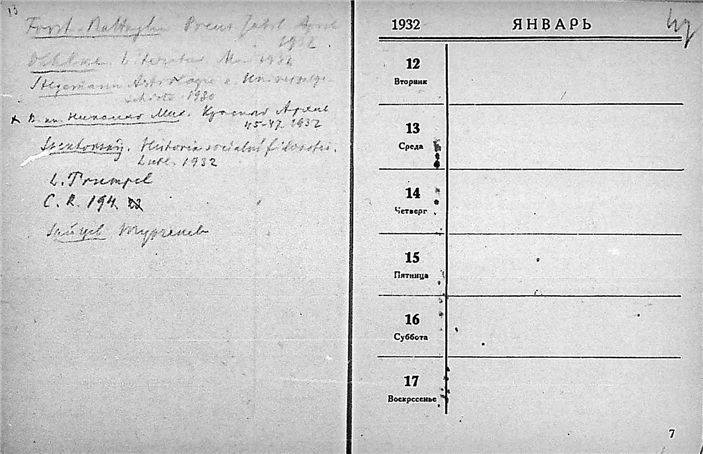 13
Forst-Battaglia Preus Jahrb April
1932
Oehlke Literatur Mai 1932
Stegemann Astrologie u. Universalge-
schichte 1930
x В. кн. Николай Мих. Красный Архив
45-47 1932
Historia socialni filosofie.
1932
L. Trumpel
C. R. 194
Зайцев Тургенев
1932 ЯНВАРЬ
12
Вторник
13
Среда
14
Четверг
15
Пятница
16
Суббота
17
Воскресенье
7